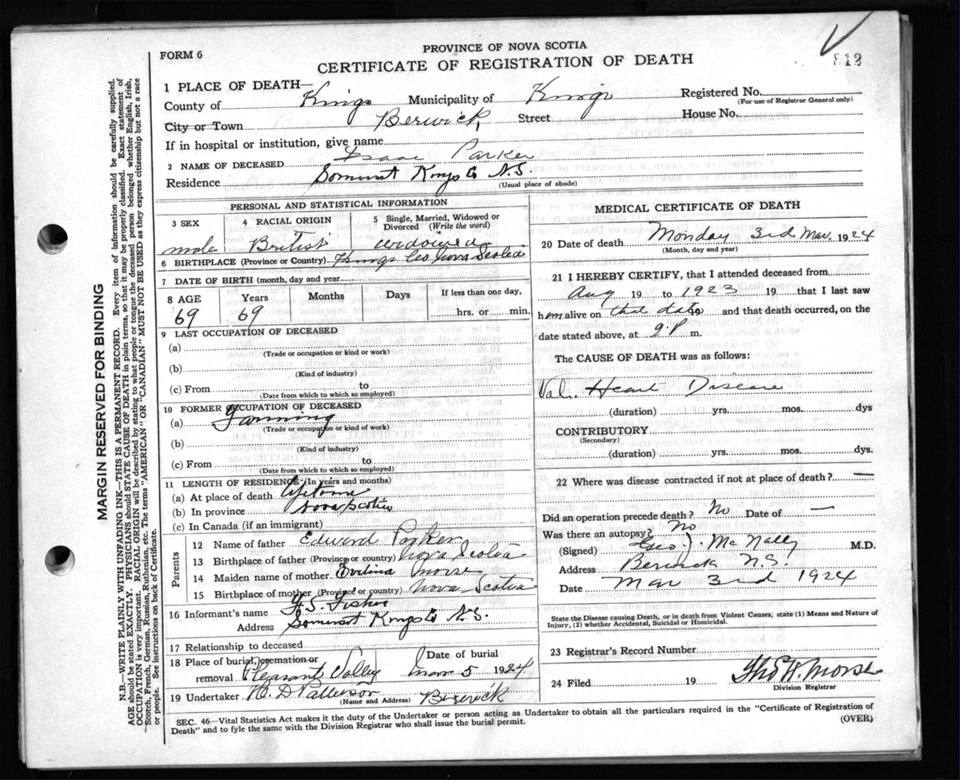 PROVINCE OF NOVA SCOTIA
FORM 6
CERTIFICATE OF REGISTRATION OF DEATH
812
1 PLACE OF DEATH—
County of Kings Municipality of Kings Registered No.
(For use of Registrar General only)
City or Town Berwick Street House No.
If in hospital or institution, give name
2 NAME OF DECEASED Isaac Parker
Residence Somerset Kings Co N.S.
(Usual place of abode)
PERSONAL AND STATISTICAL INFORMATION
3 SEX 4 RACIAL ORIGIN 5 Single, Married, Widowed or Divorced (Write the word)
male British widowed
6 BIRTHPLACE (Province or Country) Kings Co. Nova Scotia
7 DATE OF BIRTH (month, day and year)
8 AGE Years Months Days If less than one day,
69 69 hrs. or min.
9 LAST OCCUPATION OF DECEASED
(a)
(Trade or occupation or kind or work)
(b)
(Kind of industry)
(c) From to
(Date from which to which so employed)
10 FORMER OCCUPATION OF DECEASED
(a) Farming
(Trade or occupation or kind of work)
(b)
(Kind of industry)
(c) From to
(Date from which to which so employed)
11 LENGTH OF RESIDENCE (In years and months)
(a) At place of death Lifetime
(b) In province Nova Scotia
(c) In Canada (if an immigrant)
Parents
12 Name of father Edward Parker
13 Birthplace of father (Province or country) Nova Scotia
14 Maiden name of mother. Morse
15 Birthplace of mother (Province or country) Nova Scotia
16 Informant's name Fisher
Address Somerset Kings Co N.S.
17 Relationship to deceased
18 Place of burial, cremation or removal Pleasant Valley Date of burial Mar 5 1924
19 Undertaker Patterson Berwick
(Name and Address)
MEDICAL CERTIFICATE OF DEATH
20 Date of death Monday 3rd Mar, 1924
(Month, day and year)
21 I HEREBY CERTIFY, that I attended deceased from
Aug 19 to 1923 19 that I last saw
him alive on that date and that death occurred, on the
date stated above, at 9 P. m.
The CAUSE OF DEATH was as follows:
Val. Heart Disease
(duration) yrs. mos. dys
CONTRIBUTORY
(Secondary)
(duration) yrs. mos. dys.
22 Where was disease contracted if not at place of death? —
Did an operation precede death? No Date of —
Was there an autopsy? No
(Signed) Geo. J. McNally M.D.
Address Berwick N.S.
Date Mar 3rd 1924
State the Disease causing Death, or in death from Violent Causes, state (1) Means and Nature of
Injury, (2) whether Accidental, Suicidal or Homicidal.
23 Registrar's Record Number
24 Filed 19 Thos H. Morse
Division Registrar
SEC. 46—Vital Statistics Act makes it the duty of the Undertaker or person acting as Undertaker to obtain all the particulars required in the "Certificate of Registration of
Death" and to fyle the same with the Division Registrar who shall issue the burial permit.
(OVER)
MARGIN RESERVED FOR BINDING
N.B.—WRITE PLAINLY WITH UNFADING INK—THIS IS A PERMANENT RECORD. Every item of information should be carefully supplied.
AGE should be stated EXACTLY. PHYSICIANS should STATE CAUSE OF DEATH in plain terms, so that it may be properly classified. Exact statement of
OCCUPATION is very important. RACIAL ORIGIN will be described by stating to what people or tongue the deceased person belonged whether English, Irish,
Scotch, French, German, Russian, Ruthenian, etc. The terms "AMERICAN" OR "CANADIAN" MUST NOT BE USED as they express citizenship but not a race
or people. See instructions on back of Certificate.